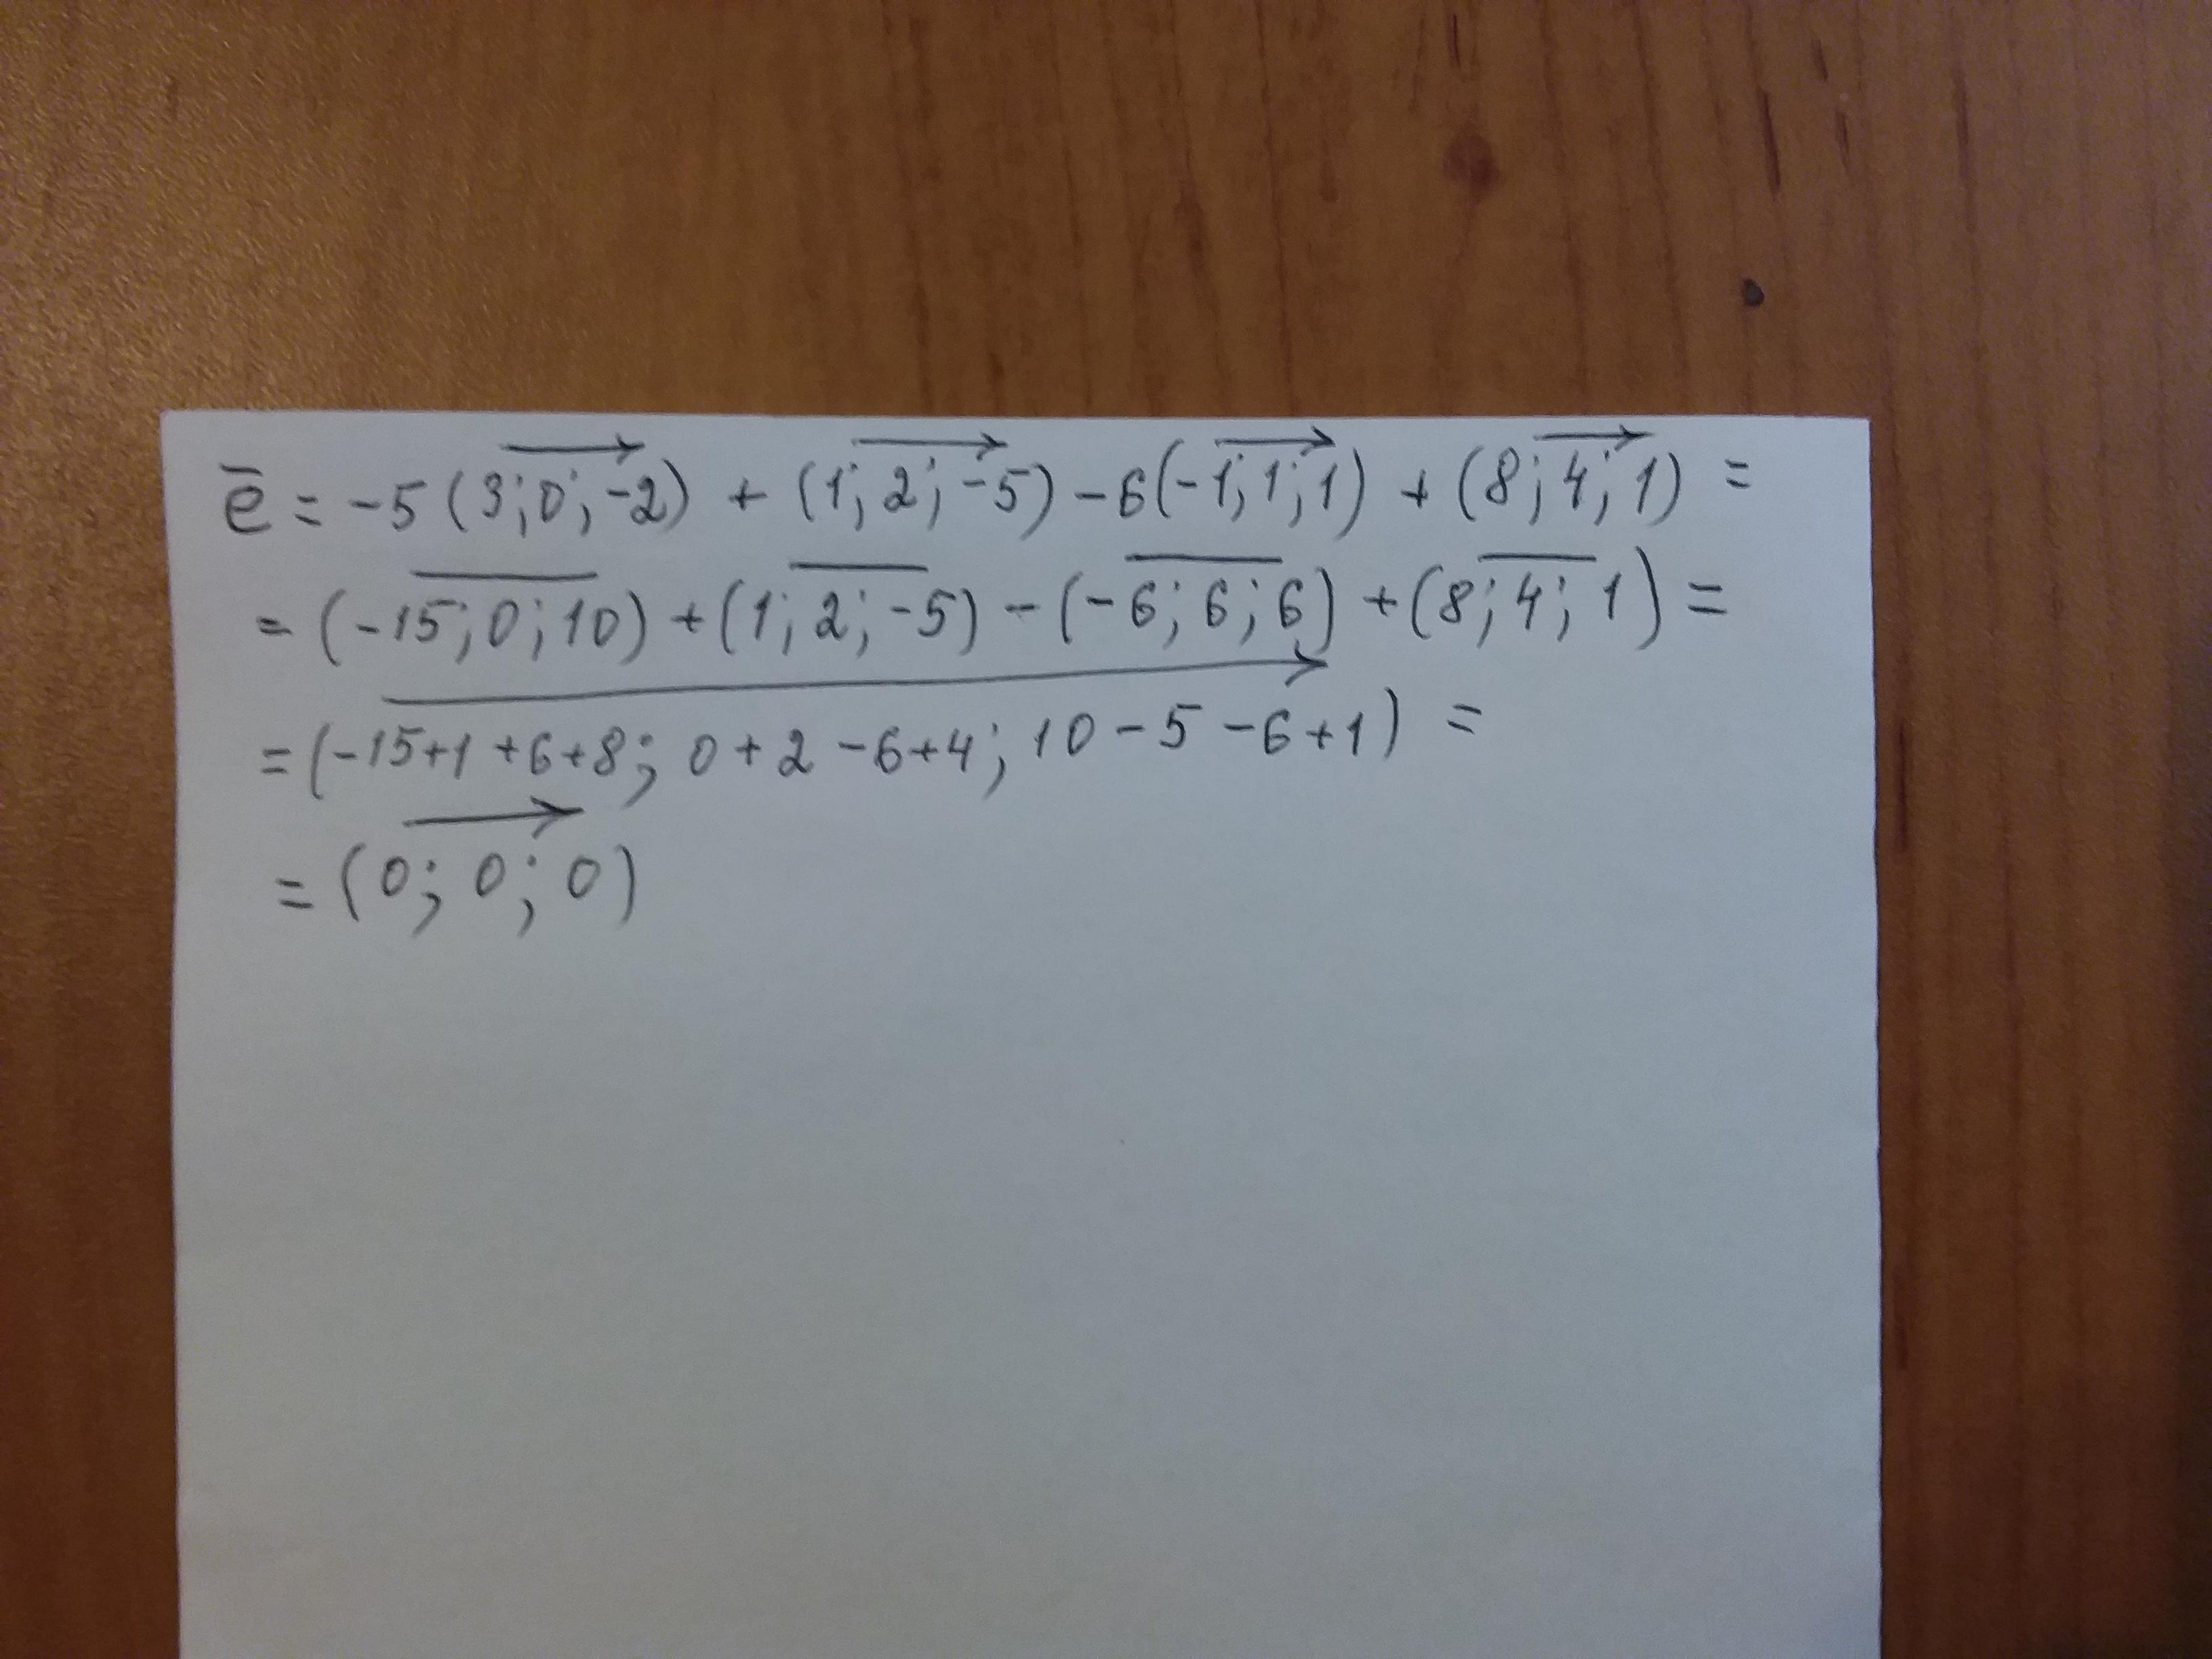 e̅ = -5(3;0;-2) + (1;2;-5) - 6(-1;1;1) + (8;4;1) =
= (-15;0;10) + (1;2;-5) - (-6;6;6) + (8;4;1) =
= (-15+1+6+8; 0+2-6+4; 10-5-6+1) =
= (0; 0; 0)